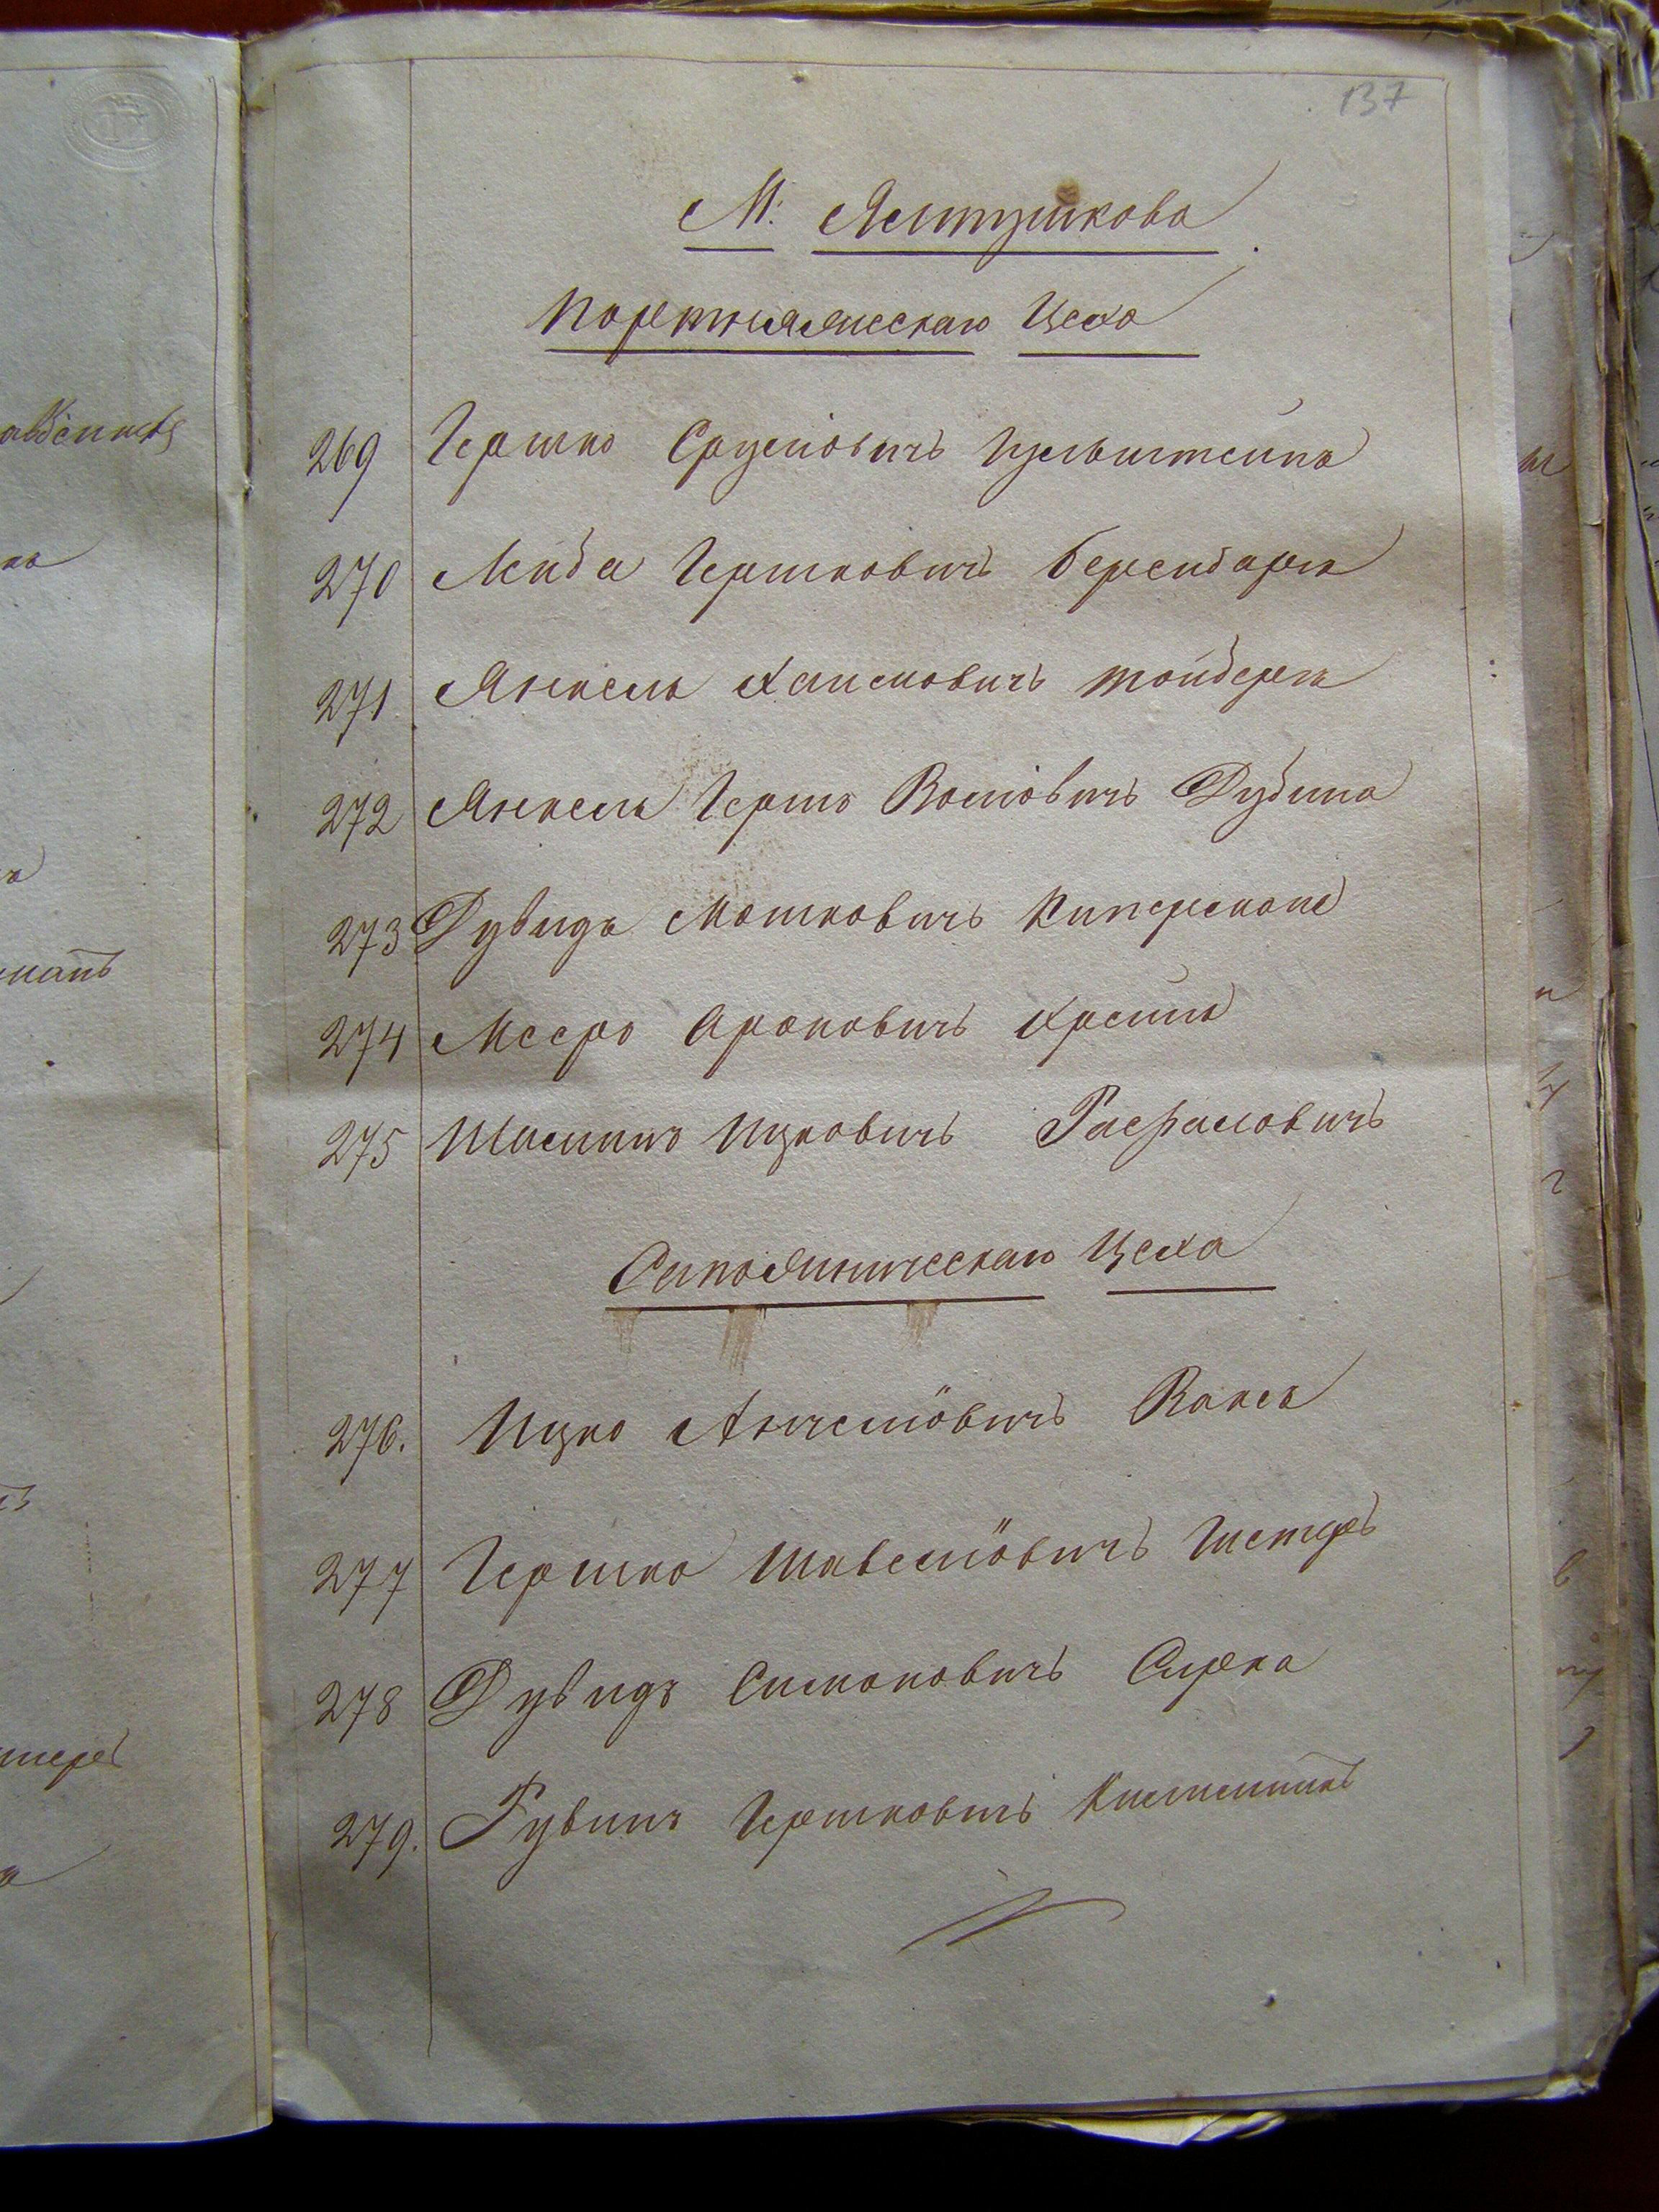 137
М. Ялтушкова
Портняжескаго Цеха
269 Гершко Срулiовичъ Гульштейнъ
270 Лейба Гершковичъ Берендаръ
271 Янкель Хаимовичъ Тойдеръ
272 Янкель Герш Волiовичъ Дубина
273 Дувидъ Мошковичъ Куперсмонъ
274 Мееръ Ароновичъ Хрейнъ
275 Ицковичъ Рафаловичъ
Сапожническаго Цеха
276. Ицко Анчелiовичъ Ваксъ
277 Гершко Шавелiовичъ Шстеръ
278 Дувидъ Симоновичъ Сирка
279. Рувинъ Гершковичъ